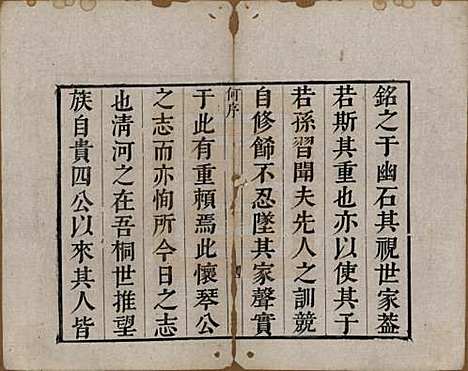 銘之于幽石其視世家葢
若斯其重也亦以使其子
若孫習聞夫先人之訓競
自修飾不忍墜其家聲實
何序
于此有重頼焉此懷琴公
之志而亦恂所今日之志
也淸河之在吾桐世推望
族自貴四公以來其人皆